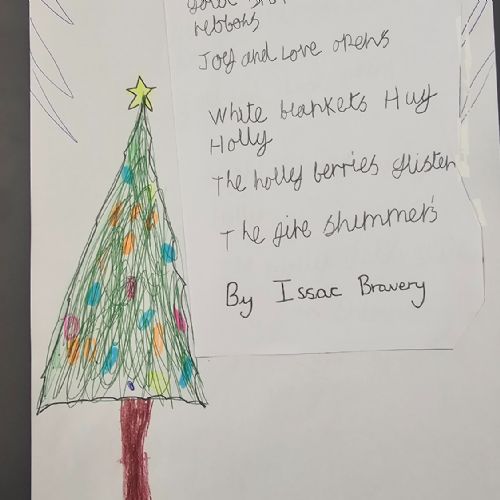 rebbons
Joy and Love opens
White blankets Hug
Holly
The holly berries glisten
The fire shimmers
By Issac Bravery